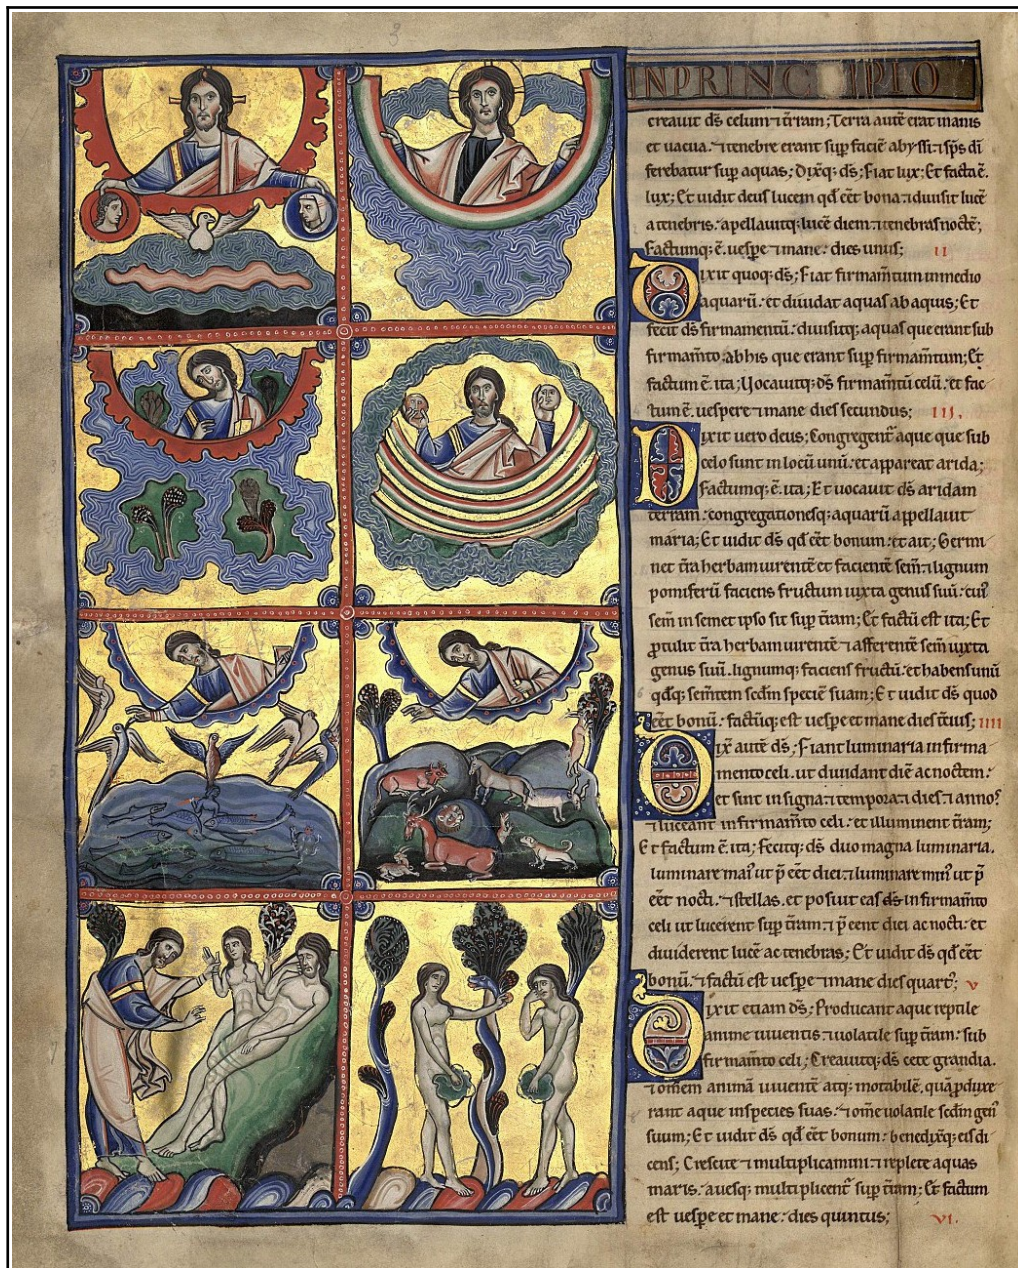 INPRINCIPIO
creauit d̄s celum ⁊ t̄ram; Terra autē erat inanis
et uacua. ⁊ tenebre erant sup̄ faciē abyssi: ⁊ sp̄s dī
ferebatur sup̄ aquas; Dixitq; d̄s; Fiat lux; Et facta ē.
lux; Et uidit deus lucem qd̄ eēt bona: ⁊ diuisit lucē
a tenebris. apellauitq; lucē diem: ⁊ tenebras noctē;
Factumq; ē. uesp̄e ⁊ mane: dies unus; II
Dixit quoq; d̄s; Fiat firmam̄tum in medio
aquarū: et diuidat aquas ab aquis; Et
fecit d̄s firmamentū: diuisitq; aquas que erant sub
firmam̄to. ab his que erant sup̄ firmam̄tum; Et
factum ē. ita; Uocauitq; d̄s firmam̄tū celū: et fac
tum ē. uespere ⁊ mane dies secundus; III.
Dixit uero deus; Congregent̄ aque que sub
celo sunt in locū unū: et appareat arida;
Factumq; ē. ita; Et uocauit d̄s aridam
terram: congregationesq; aquarū appellauit
maria; Et uidit d̄s qd̄ eēt bonum: et ait; Germi
net t̄ra herbam uirentē et facientē sem̄ ⁊ lignum
pomiferū faciens fructum iuxta genus suū: cui᾽
sem̄ in semet ipso sit sup̄ t̄ram; Et factū est ita; Et
ꝓtulit t̄ra herbam uirentē ⁊ afferentē sem̄ iuxta
genus suū. lignumq; faciens fructū: et habens unū
qdq; sem̄tem sēdm speciē suam; Et uidit d̄s quod
eēt bonū: factūq; est uesp̄e et mane dies t̄cius; IIII
Dix̄ autē d̄s; Fiant luminaria in firma
mento celi. ut diuidant diē ac noctem:
et sint in signa ⁊ tempora ⁊ dies ⁊ annos
⁊ luceant in firmam̄to celi: et illuminent t̄ram;
Et factum ē. ita; Fecitq; d̄s duo magna luminaria.
luminare mai᾽ ut p̄ eēt diei: ⁊ luminare min᾽ ut p̄
eēt nocti. ⁊ stellas. et posuit eas d̄s in firmam̄to
celi ut lucerent sup̄ t̄ram: ⁊ p̄ eent diei ac nocti: et
diuiderent lucē ac tenebras; Et uidit d̄s qd̄ eēt
bonū. ⁊ factū est uesp̄e ⁊ mane dies quart᾽; V
Dixit etiam d̄s; Producant aque reptile
anime uiuentis ⁊ uolatile sup̄ t̄ram: sub
firmam̄to celi; Creauitq; d̄s cete grandia.
⁊ omem animā uiuentē atq; motabilē. quā ꝓduxe
rant aque in species suas: ⁊ ome uolatile sēdm gen᾽
suum; Et uidit d̄s qd̄ eēt bonum: benedixitq; eis di
cens; Crescite ⁊ multiplicamini: ⁊ replete aquas
maris. auesq; multiplicent̄ sup̄ t̄ram; Et factum
est uesp̄e et mane: dies quintus; VI.